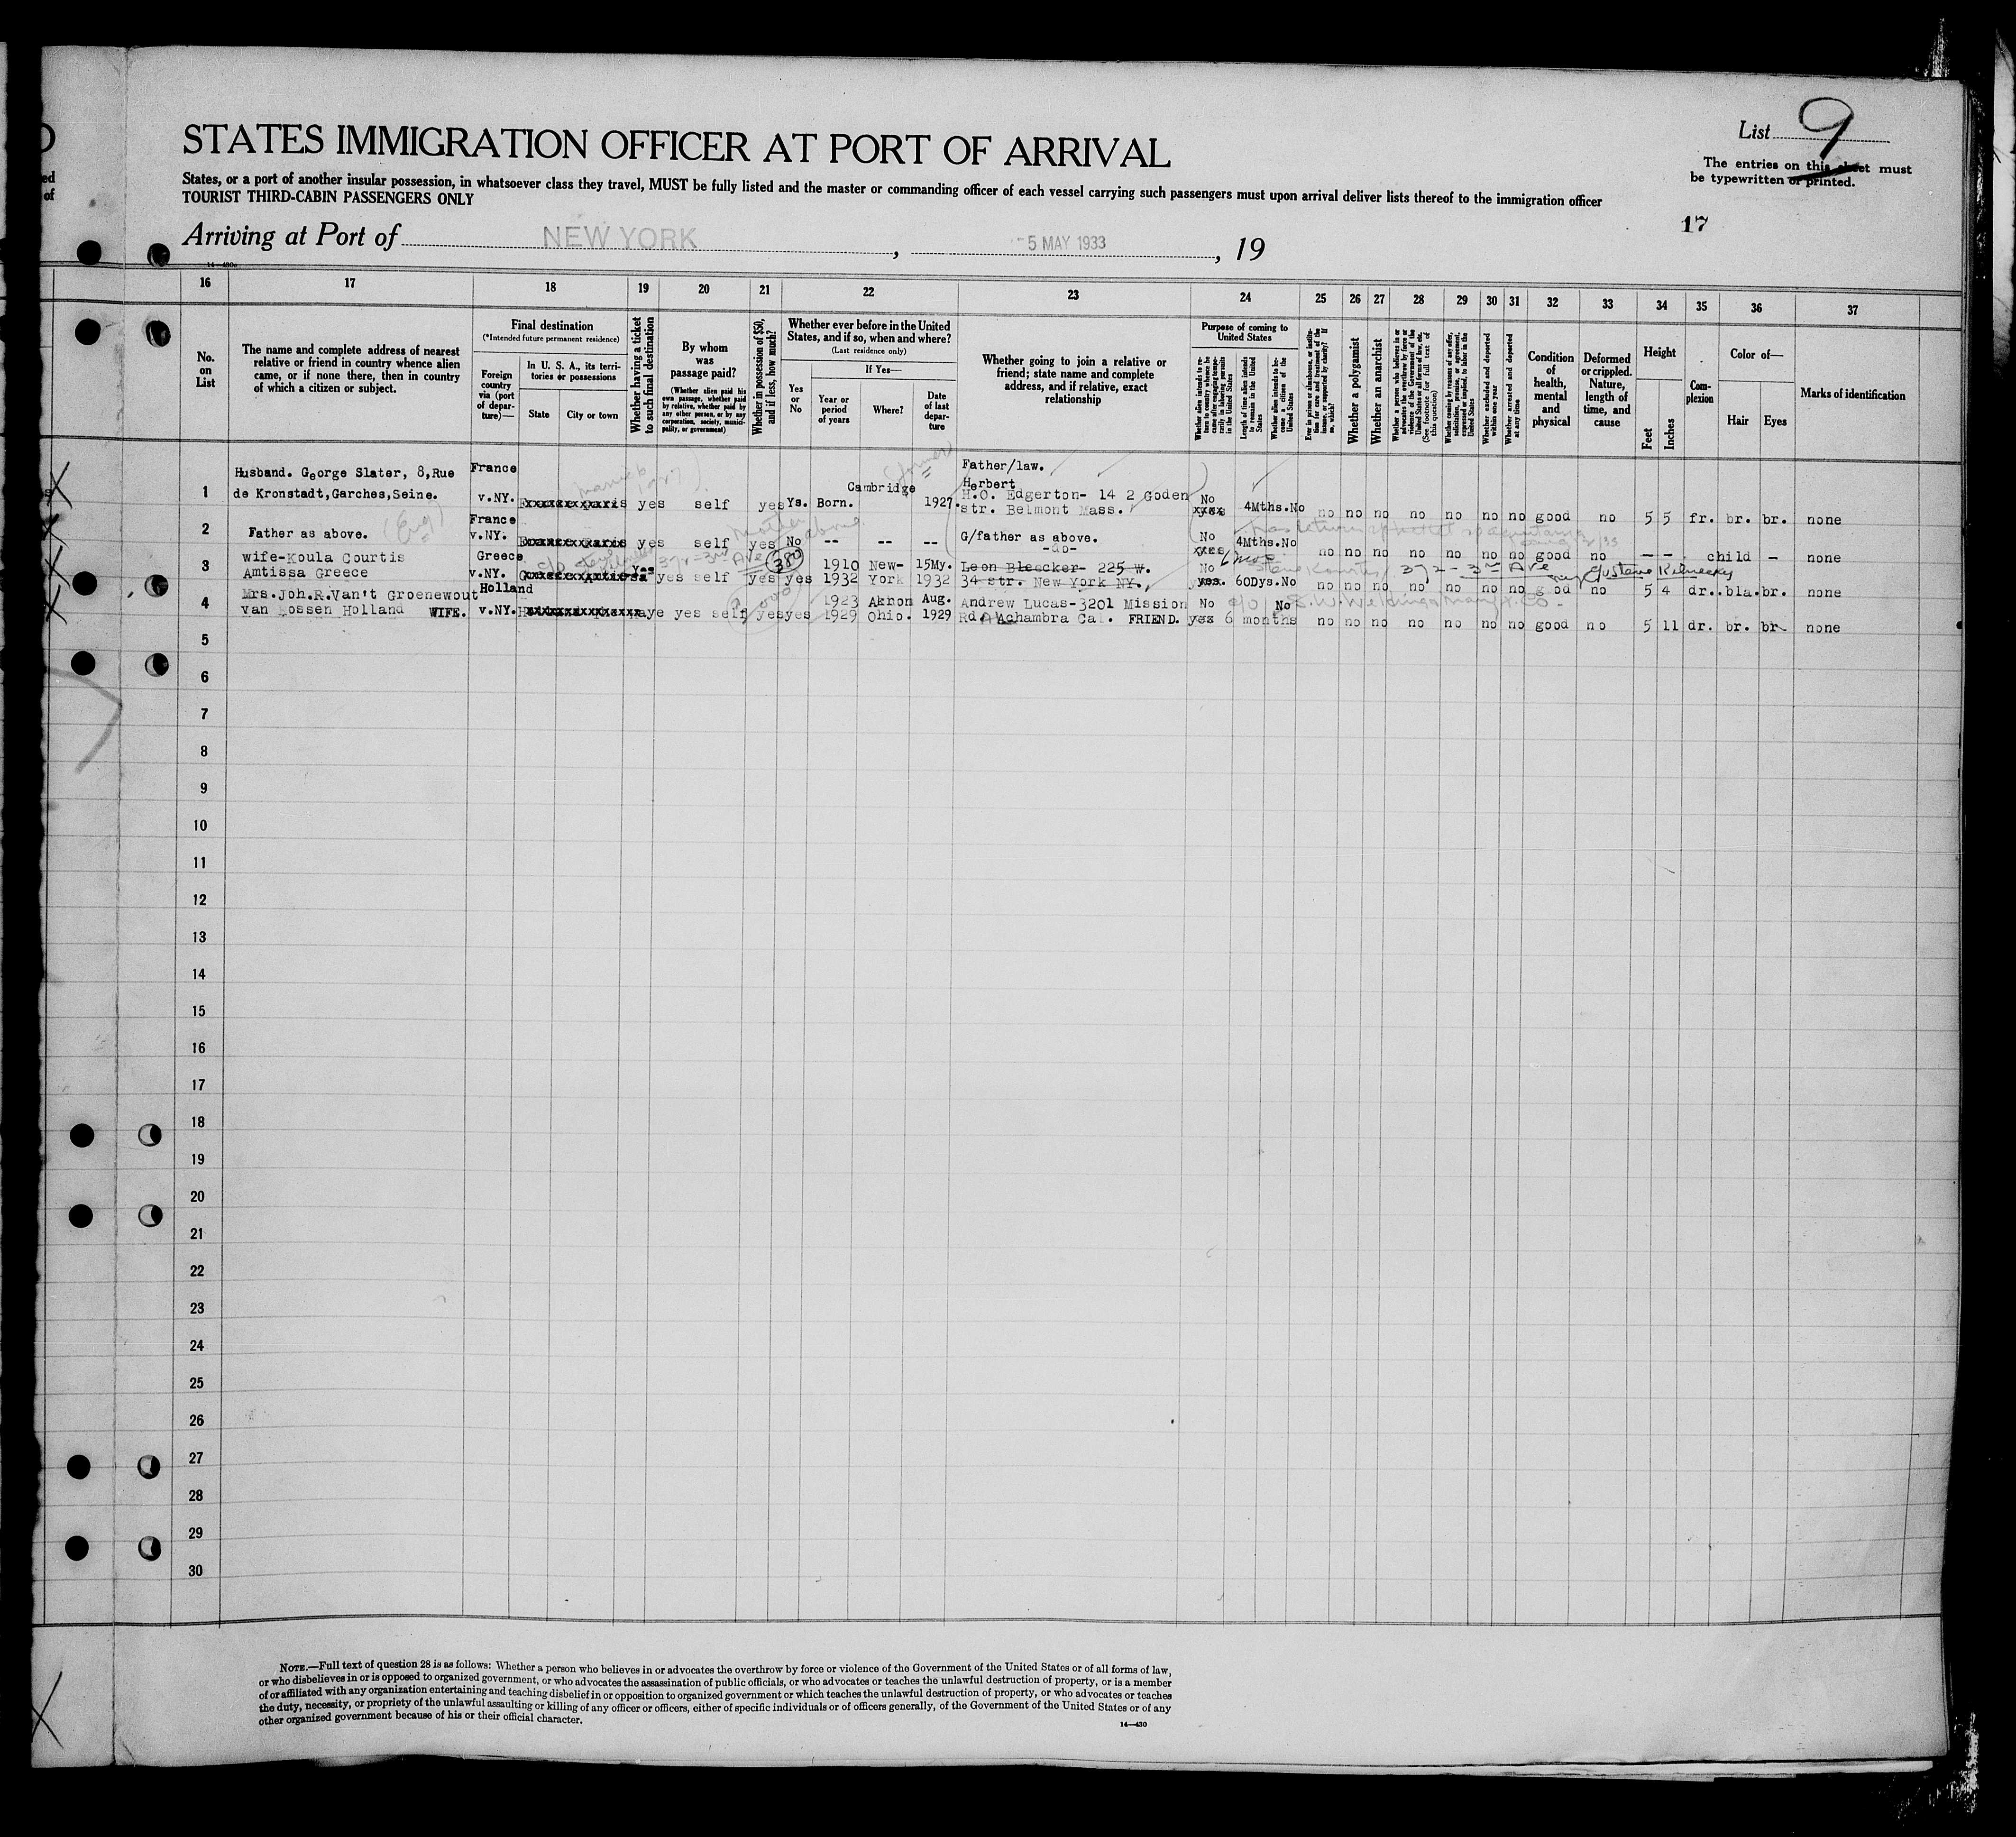 List 9
STATES IMMIGRATION OFFICER AT PORT OF ARRIVAL
The entries on this sheet must
be typewritten or printed.
States, or a port of another insular possession, in whatsoever class they travel, MUST be fully listed and the master or commanding officer of each vessel carrying such passengers must upon arrival deliver lists thereof to the immigration officer
TOURIST THIRD-CABIN PASSENGERS ONLY
17
Arriving at Port of NEW YORK, 5 MAY 1933, 19
16 17 18 19 20 21 22 23 24 25 26 27 28 29 30 31 32 33 34 35 36 37
No. on List
The name and complete address of nearest
relative or friend in country whence alien
came, or if none there, then in country
of which a citizen or subject.
Final destination
(*Intended future permanent residence)
Foreign country via (port of departure)—
In U. S. A., its territories or possessions
State City or town
Whether having a ticket to such final destination
By whom was passage paid?
(Whether alien paid his own passage, whether paid by relative, whether paid by any other person, or by any corporation, society, municipality, or government)
Whether in possession of $50, and if less, how much?
Whether ever before in the United States, and if so, when and where?
(Last residence only)
Yes or No
If Yes—
Year or period of years
Where?
Date of last departure
Whether going to join a relative or
friend; state name and complete
address, and if relative, exact
relationship
Purpose of coming to United States
Whether alien intends to return to country whence he came after engaging temporarily in laboring pursuits in the United States
Length of time alien intends to remain in the United States
Whether alien intends to become a citizen of the United States
Ever in prison or almshouse, or institution for care and treatment of the insane, or supported by charity? If so, which?
Whether a polygamist
Whether an anarchist
Whether a person who believes in or advocates the overthrow by force or violence of the Government of the United States or all forms of law, etc. (See footnote for full text of this question)
Whether coming by reasons of any offer, solicitation, promise, or agreement, expressed or implied, to labor in the United States
Whether excluded and deported within one year
Whether arrested and deported at any time
Condition of health, mental and physical
Deformed or crippled. Nature, length of time, and cause
Height
Feet Inches
Complexion
Color of—
Hair Eyes
Marks of identification
1 Husband. George Slater, 8,Rue
de Kronstadt,Garches,Seine. France v.NY. yes self yes Ys. Born. Cambridge 1927. Father/law. Herbert H.O. Edgerton- 14 2 Goden str. Belmont Mass. No 4Mths.No no no no no no no no good no 5 5 fr. br. br. none
2 Father as above. (Eng) France v.NY. yes self yes No -- -- -- G/father as above. -do- No 4Mths.No no no no no no no no good no -- child - none
3 wife-Koula Courtis
Amtissa Greece Greece v.NY. yes yes self yes (380) yes 1910 1932 New-York 15My. 1932 Leon Bleecker- 225 W. 34 str. New York NY. No yes. 60Dys.No no no no no no no no good no 5 4 dr. bla. br. none
6 mos 372 - 3rd Ave Gustave
4 Mrs.Joh.R.Van't Groenewout
van Lossen Holland WIFE. Holland v.NY. yes self yes yes 1923 1929 Akron Ohio. Aug. 1929 Andrew Lucas-3201 Mission Rd. Achambra Cal. FRIEND. No yes 6 months No no no no no no no no good no 5 11 dr. br. br. none
5
6
7
8
9
10
11
12
13
14
15
16
17
18
19
20
21
22
23
24
25
26
27
28
29
30
NOTE.—Full text of question 28 is as follows: Whether a person who believes in or advocates the overthrow by force or violence of the Government of the United States or of all forms of law,
or who disbelieves in or is opposed to organized government, or who advocates the assassination of public officials, or who advocates or teaches the unlawful destruction of property, or is a member
of or affiliated with any organization entertaining and teaching disbelief in or opposition to organized government or which teaches the unlawful destruction of property, or who advocates or teaches
the duty, necessity, or propriety of the unlawful assaulting or killing of any officer or officers, either of specific individuals or of officers generally, of the Government of the United States or of any
other organized government because of his or their official character.
14—430